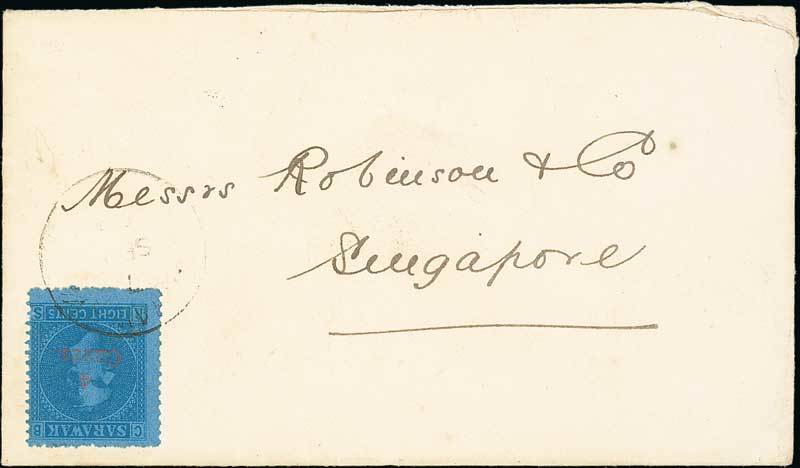 Messrs Robinson & Co
Singapore
C SARAWAK B
4
CENTS
R EIGHT CENTS S